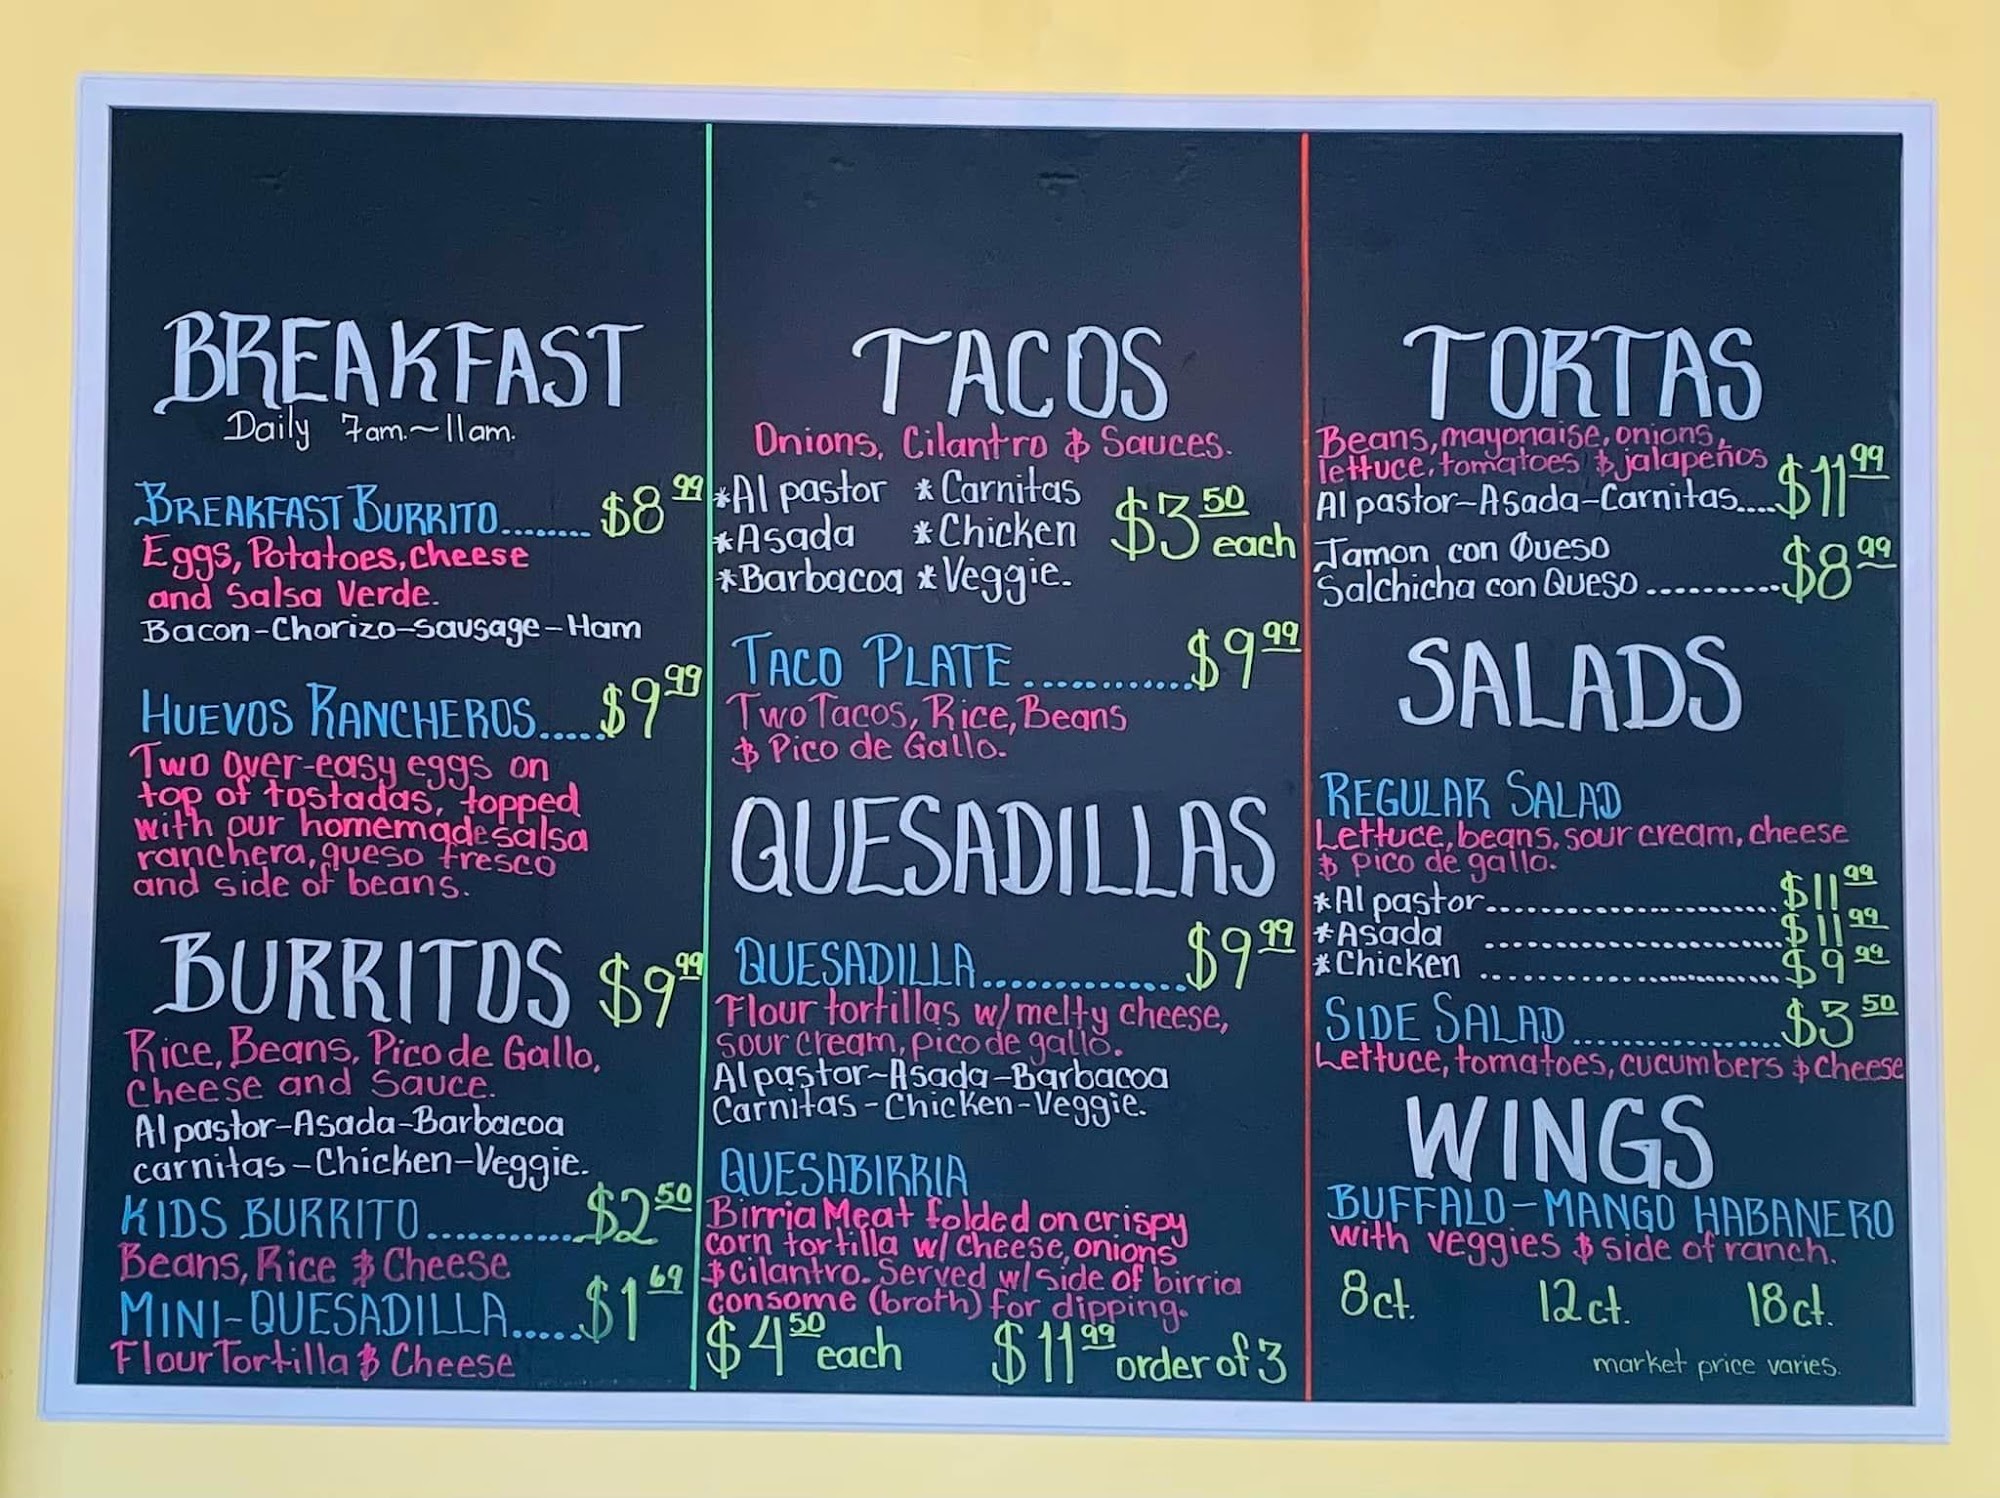 BREAKFAST
Daily 7am.~11am.
BREAKFAST BURRITO........ $8 99
Eggs, Potatoes, cheese
and Salsa Verde.
Bacon-Chorizo-Sausage-Ham
HUEVOS RANCHEROS..... $9 99
Two over-easy eggs on
top of tostadas, topped
with our homemade salsa
ranchera, queso fresco
and side of beans.
BURRITOS $9 99
Rice, Beans, Pico de Gallo,
Cheese and Sauce.
Al pastor-Asada-Barbacoa
carnitas-Chicken-Veggie.
KIDS BURRITO............ $2 50
Beans, Rice & Cheese
MINI-QUESADILLA..... $1 69
Flour Tortilla & Cheese
TACOS
Onions, Cilantro & Sauces.
*Al pastor *Carnitas
*Asada *Chicken $3 50 each
*Barbacoa *Veggie.
TACO PLATE............ $9 99
Two Tacos, Rice, Beans
& Pico de Gallo.
QUESADILLAS
QUESADILLA............... $9 99
Flour tortillas w/ melty cheese,
sour cream, pico de gallo.
Al pastor-Asada-Barbacoa
Carnitas-Chicken-Veggie.
QUESABIRRIA
Birria Meat folded on crispy
corn tortilla w/ Cheese, onions
& Cilantro. Served w/ side of birria
consome (broth) for dipping.
$4 50 each $11 99 order of 3
TORTAS
Beans, mayonaise, onions,
lettuce, tomatoes & jalapeños
Al pastor-Asada-Carnitas.... $11 99
Jamon con Queso
Salchicha con Queso.......... $8 99
SALADS
REGULAR SALAD
Lettuce, beans, sour cream, cheese
& pico de gallo.
*Al pastor........................ $11 99
*Asada ........................ $11 99
*Chicken ........................ $9 99
SIDE SALAD................ $3 50
Lettuce, tomatoes, cucumbers & cheese
WINGS
BUFFALO-MANGO HABANERO
with veggies & side of ranch.
8ct. 12ct. 18ct.
market price varies.